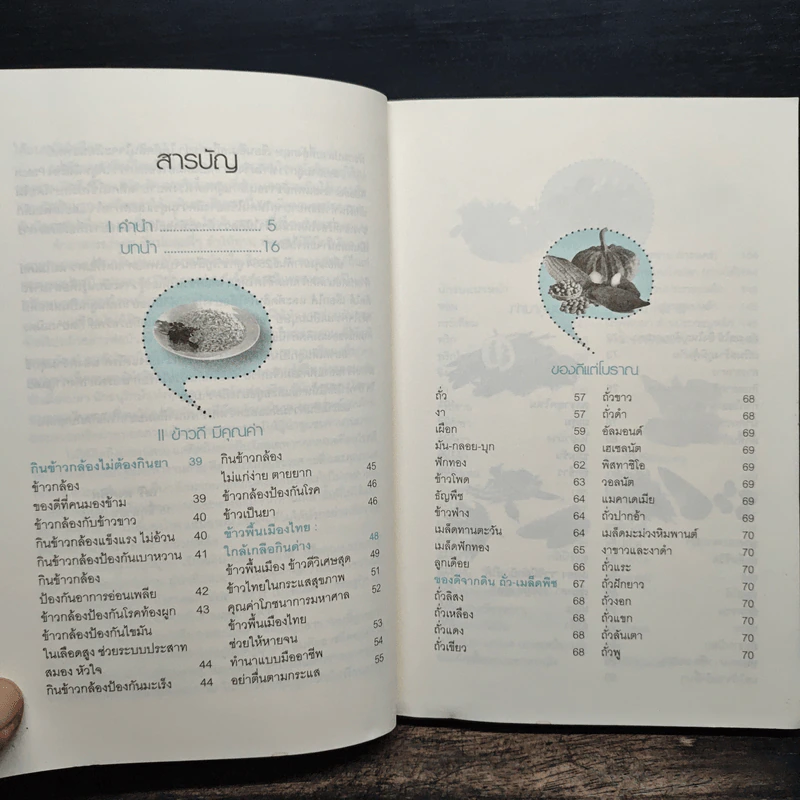 สารบัญ
I คำนำ .............................. 5
บทนำ ............................. 16
II ข้าวดี มีคุณค่า
กินข้าวกล้องไม่ต้องกินยา 39
ข้าวกล้อง
ของดีที่คนมองข้าม 39
ข้าวกล้องกับข้าวขาว 40
กินข้าวกล้องแข็งแรง ไม่อ้วน 40
กินข้าวกล้องป้องกันเบาหวาน 41
กินข้าวกล้อง
ป้องกันอาการอ่อนเพลีย 42
ข้าวกล้องป้องกันโรคท้องผูก 43
ข้าวกล้องป้องกันไขมัน
ในเลือดสูง ช่วยระบบประสาท
สมอง หัวใจ 44
กินข้าวกล้องป้องกันมะเร็ง 44
กินข้าวกล้อง
ไม่แก่ง่าย ตายยาก 45
ข้าวกล้องป้องกันโรค 46
ข้าวเป็นยา 46
ข้าวพื้นเมืองไทย :
ใกล้เกลือกินด่าง 48
ข้าวพื้นเมือง ข้าวดีวิเศษสุด 49
ข้าวไทยในกระแสสุขภาพ 51
คุณค่าโภชนาการมหาศาล 52
ข้าวพื้นเมืองไทย
ช่วยให้หายจน 53
ทำนาแบบมืออาชีพ 54
อย่าตื่นตามกระแส 55
ของดีแต่โบราณ
ถั่ว 57
งา 57
เผือก 59
มัน-กลอย-บุก 60
ฟักทอง 62
ข้าวโพด 63
ธัญพืช 64
ข้าวฟ่าง 64
เมล็ดทานตะวัน 64
เมล็ดฟักทอง 65
ลูกเดือย 66
ของดีจากดิน ถั่ว-เมล็ดพืช 67
ถั่วลิสง 67
ถั่วเหลือง 68
ถั่วแดง 68
ถั่วเขียว 68
ถั่วขาว 68
ถั่วดำ 68
อัลมอนด์ 69
เฮเซลนัต 69
พิสทาชิโอ 69
วอลนัต 69
แมคาเดเมีย 69
ถั่วปากอ้า 69
เมล็ดมะม่วงหิมพานต์ 70
งาขาวและงาดำ 70
ถั่วแระ 70
ถั่วฝักยาว 70
ถั่วงอก 70
ถั่วแขก 70
ถั่วลันเตา 70
ถั่วพู 70